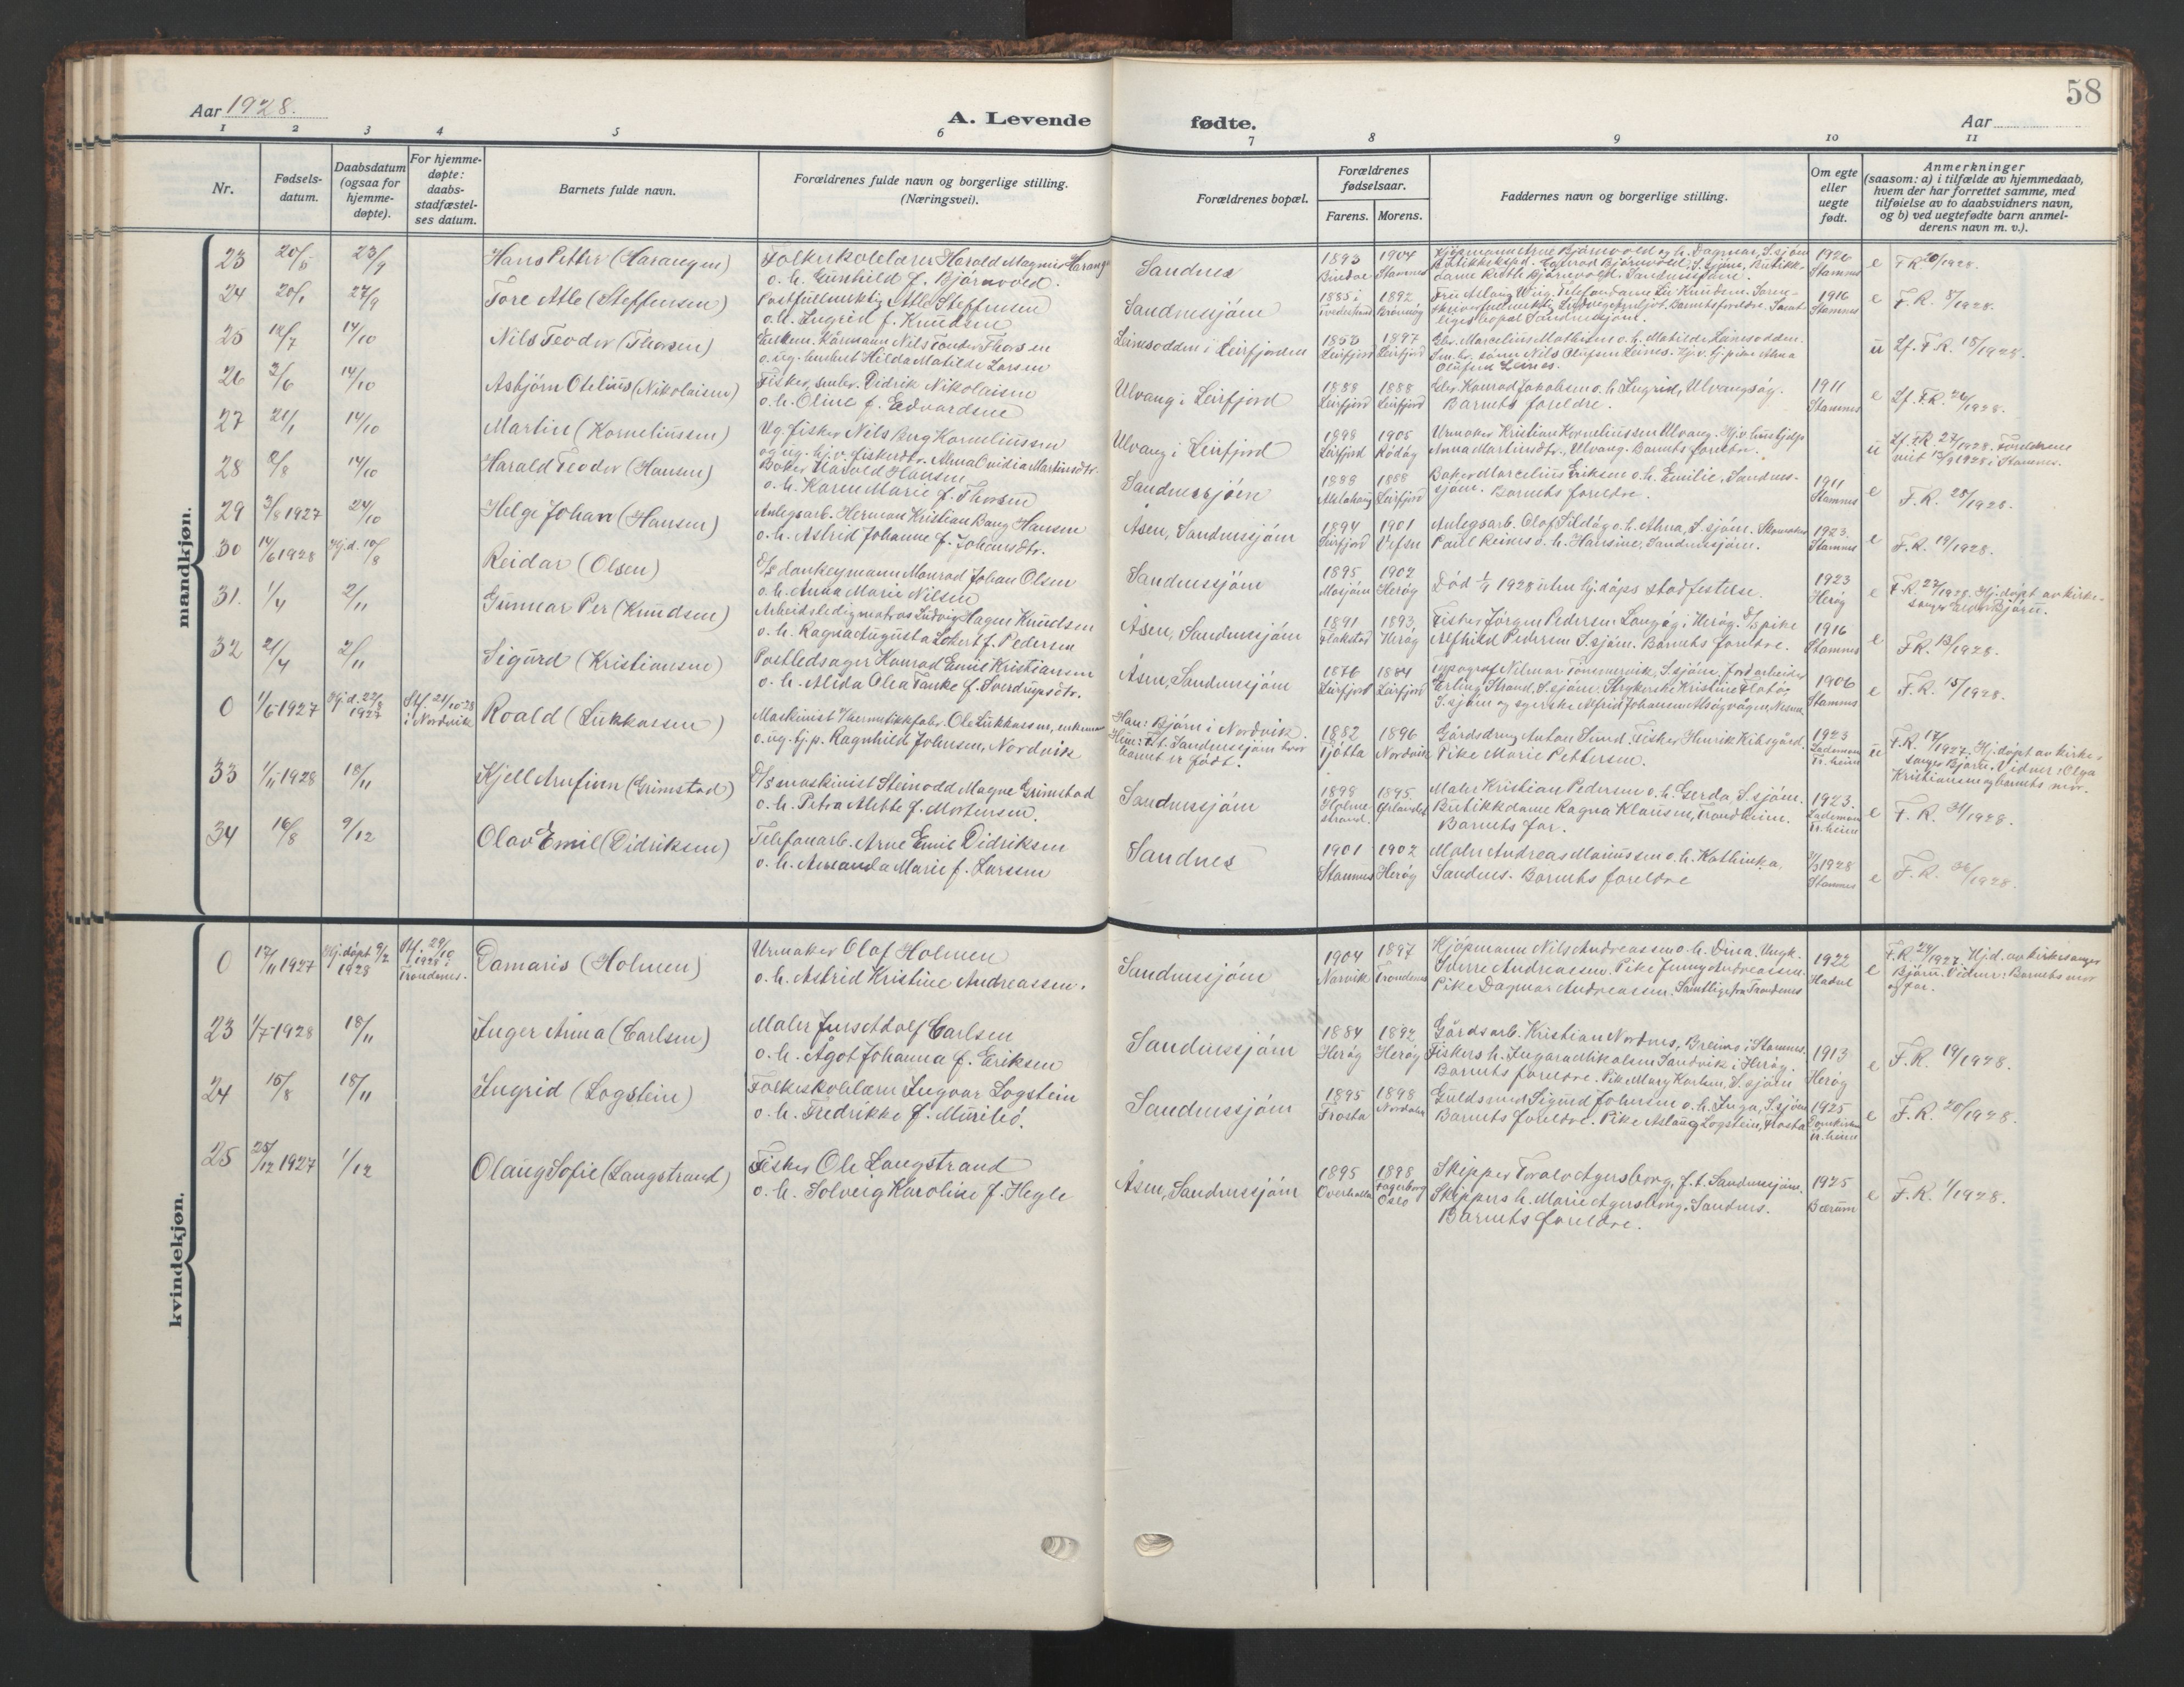 58
Aar 1928.
A. Levende
fødte.
Aar
1 2 3 4 5 6 7 8 9 10 11
Nr.
Fødsels-
datum.
Daabsdatum
(ogsaa for
hjemme-
døpte).
For hjemme-
døpte:
daabs-
stadfæstel-
ses datum.
Barnets fulde navn.
Forældrenes fulde navn og borgerlige stilling.
(Næringsvei).
Forældrenes bopæl.
Forældrenes
fødselsaar.
Farens. Morens.
Faddernes navn og borgerlige stilling.
Om egte
eller
uegte
født.
Anmerkninger
(saasom: a) i tilfælde av hjemmedaab,
hvem der har forrettet samme, med
tilføielse av to daabsvidners navn,
og b) ved uegtefødte barn anmel-
derens navn m. v.).
mandkjøn.
23 23/9 Hans Petter (Harangen)
Folkeskolelærer Harald Magnus Harang
o. h. Gunhild f. Bjørnvold.
Sandnes
1893 1904
Bindal Stamnes
1926
Stamnes
e F.R. 20/1928.
24 20/1 27/9 Tore Atle (Steffensen)
Postfullmektig Atle Steffensen
o. h. Ingrid f. Knudsen
Sandnessjøen
1885 1892
Brønnøy
1916
Stamnes
e F.R. 5/1928.
25 14/7 14/10 Nils Teodor (Thorsen)
Enkem. Kårmann Nils Teodor Thorsen
o. ug. Hilda Matilde Larsen
Leinesodden i Leirfjorden
1853 1897
Leirfjord Leirfjord
Gbr. Marcelius Mathisen o. h. Matilde Leinesodden.
Sm.br. sønn Nils Olufsen Leines. Hj.v. tj. pike Alma
Olufsen Leines.
u Lf. F.R. 18/1928.
26 3/6 14/10 Asbjørn Otelius (Nikolaisen)
Fisker, småbr. Didrik Nikolaisen
o. h. Oline f. Edvardsen
Ulvang i Leirfjord
1888 1888
Leirfjord Leirfjord
Gbr. Konrad Jakobsen o. h. Ingrid, Ulvangsøg.
Barnets foreldre.
1911
Stamnes
e Lf. F.R. 26/1928.
27 21/1 14/10 Martin (Korneliussen)
Ug. fisker Nils Berg Korneliussen
og ug. hj. v. fiskerdtr. Alma Ovidia Martinsdtr.
Ulvang i Leirfjord
1898 1905
Leirfjord Rødøy
Urmaker Kristian Korneliussen Ulvang. Hj.v. hushjelp
Anna Martinsdtr., Ulvang. Barnets foreldre.
u Lf. F.R. 27/1928. Foreldrene
viet 13/9 1928 i Stamnes.
28 8/8 14/10 Harald Teodor (Hansen)
Baker Harald Hansen
o. h. Karen Marie f. Thorsen
Sandnessjøen
1888 1888
Alstahaug Leirfjord
Baker Marcelius Eriksen o. h. Emilie, Sandnes-
sjøen. Barnets foreldre.
1911
Stamnes
e F.R. 25/1928.
29 3/8 1927 24/10 Helge Johan (Hansen)
Anlegsarb. Herman Kristian Bang Hansen
o. h. Astrid Johanne f. Johansdtr.
Åsen, Sandnessjøen
1894 1901
Leirfjord Vefsn
Anlegsarb. Olaf Sildøg o. h. Alma, S.sjøen. Skomaker
Paul Reines o. h. Hansine, Sandnessjøen.
1923.
Stamnes
e F.R. 19/1928.
30 14/6 1928 Hj.d. 10/8 Reidar (Olsen)
D/s donkeymann Monrad Johan Olsen
o. h. Anna Marie Nilsen
Sandnessjøen
1895 1902
Mosjøen Herøy
Død 1/9 1928 uten hj.døps stadfestelse.
1923
Herøy
e F.R. 22/1928. Hj.døpt av kirke-
sanger Bjørn.
31. 1/4 2/11 Gunnar Per (Knudsen)
Arbeidsledig matros Ludvig Hagen Knudsen
o. h. Ragna Augusta Lokert f. Pedersen
Åsen, Sandnessjøen
1891 1893,
Flakstad Herøy
Fisker Jørgen Pedersen Langøy i Herøy. D/s pike
Alfhild Pedersen S.sjøen. Barnets foreldre.
1916
Stamnes
e F.R. 13/1928.
32 21/4 2/11 Sigurd (Kristiansen)
Postledsager Konrad Emil Kristiansen
o. h. Alida Olea Tanke f. Sverdrupsdtr.
Åsen, Sandnessjøen
1876 1884
Leirfjord Leirfjord
Typograf Vilmar Tømmervik, S.sjøen, Jordarbeider
Erling Strand, S.sjøen. Strykerske Kristine Flatøy,
S.sjøen og syerske Alfrid Johansen Alsøyvågen Nesna
1906
Stamnes
e F.R. 15/1928.
0 1/5 1927 Hj.d. 22/8 1927 Stf. 21/10-28
i Nordvik Roald (Lukkassen)
Maskinist v/hermetikkfabr. Ole Lukkassen, enkemann
o. ug. tj. p. Ragnhild Johnsen, Nordvik
Han: Bjørn i Nordvik.
Hun: F.t. Sandnessjøen hvor
barnet er født.
1882 1896
Tjøtta Nordvik
Gårdsdreng Anton Sund. Fisker Henrik Kibsgård.
Pike Marie Pettersen.
1923
Lademoen
Tr.heim
u F.R. 17/1927. Hj.døpt av kirke-
sanger Bjørn. Vidner: Olga
Kristiansen og barnets mor.
33 1/5 1928 18/11 Kjell Arnfinn (Grimstad)
D/s maskinist Steinodd Magne Grimstad
o. h. Petra Mette f. Mortensen.
Sandnessjøen
1898 1895.
Holme-
strand. Ørlandet
Maler Kristian Pedersen o. h. Gerda, S.sjøen.
Butikkdame Ragna Klausen, Trondheim.
Barnets far.
1923.
Lademoen
Tr.heim
e F.R. 31/1928.
34 16/8 9/12 Olav Emil (Didriksen)
Telefonarb. Arne Emil Didriksen
o. h. Amanda Marie f. Larssen
Sandnes
1901 1902
Stamnes Herøy
Maler Andreas Mariussen o. h. Kathinka,
Sandnes. Barnets foreldre
1928
Stamnes
e F.R. 36/1928.
kvindekjøn.
0 17/11 1927 Hj.døpt 9/2
1928 Stf. 29/10
1928 i
Trondenes. Damaris (Holmen)
Urmaker Olaf Holmen
o. h. Astrid Kristine Andreassen.
Sandnessjøen
1904 1897
Narvik Trondenes
Kjøpmann Nils Andreassen o. h. Dina. Ungk.
Sverre Andreassen. Pike Jenny Andreassen.
Pike Dagmar Andreassen. Samtlige fra Trondenes
1922
Hadsel
e F.R. 24/1927. Hj.d. av kirkesanger
Bjørn. Vidner: Barnets mor
og far.
23 1/7 1928 18/11 Inger Anna (Carlsen)
Maler Jens Adolf Carlsen
o. h. Ågot Johanna f. Eriksen
Sandnessjøen
1884 1892
Herøy Herøy
Gårdsarb. Kristian Nordnes, Breimo i Stamnes.
Fiskers h. Ingara Mikalsen Sandvik i Herøy.
Barnets foreldre. Pike Mary Karlsen, S.sjøen
1913
Herøy
e F.R. 19/1928.
24 15/8 18/11 Ingrid (Logstein)
Folkeskolelærer Ingvar Logstein
o. h. Fredrikke f. Murilió.
Sandnessjøen
1895 1898
Frosta
Guldsmed Sigurd Johnsen o. h. Inga, S.sjøen
Barnets foreldre. Pike Aslaug Logstein, Frosta
1925
Domkirken
Tr.heim
e F.R. 20/1928.
25 25/12 1927 1/12 Olaug Sofie (Langstrand)
Fisker Ole Langstrand
o. h. Solveig Karoline f. Hegle
Åsen, Sandnessjøen
1895 1898
Overhalla Fagerborg
Oslo
Skipper Toralv Agersborg, f.t. Sandnessjøen.
Skippers h. Marie Agersborg, Sandnes.
Barnets foreldre.
1925
Bærum
e F.R. 1/1928.